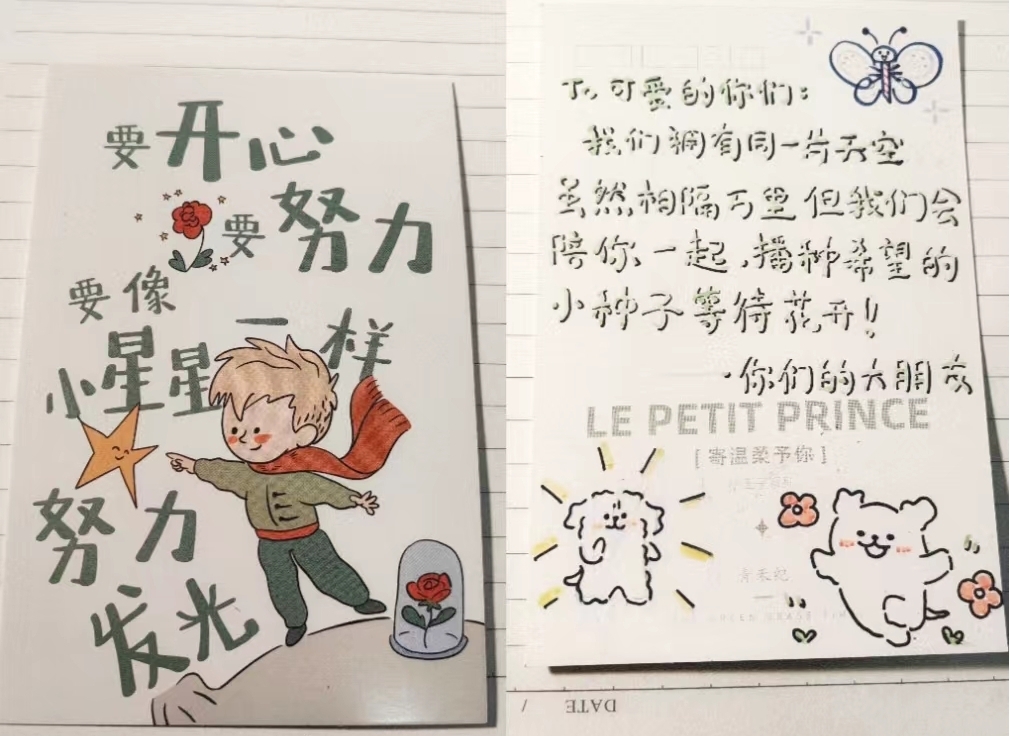 要开心
要努力
要像
小星星一样
努力
发光
To 可爱的你们：
我们拥有同一片天空
虽然相隔万里但我们会
陪你一起，播种希望的
小种子等待花开！！
·你们的大朋友
LE PETIT PRINCE
[寄温柔予你]
DATE